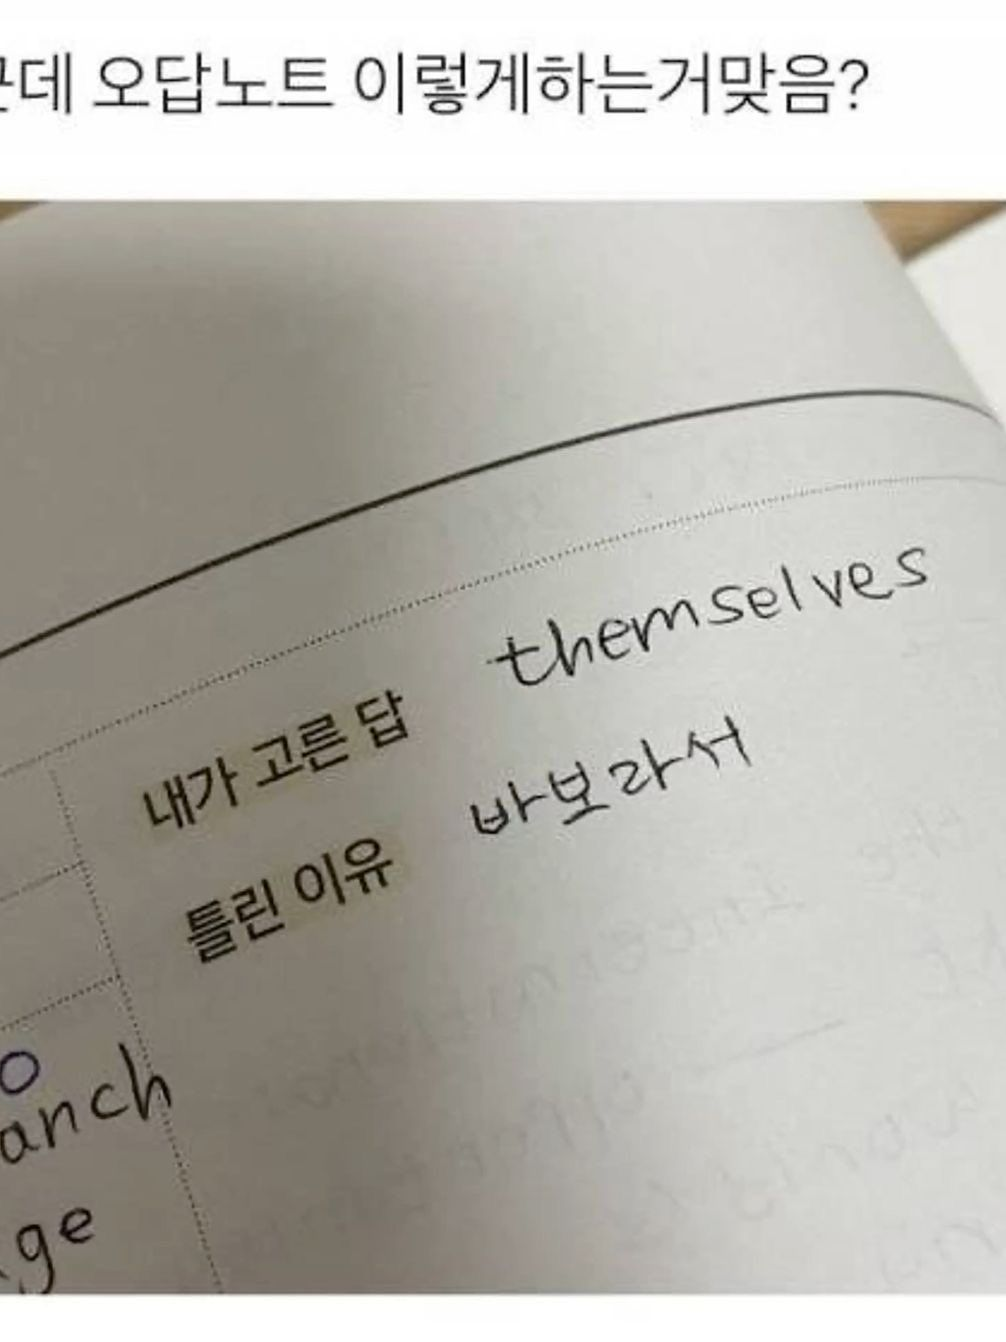 데 오답노트 이렇게하는거맞음?
내가 고른 답 themselves
틀린 이유 바보라서
anch
ge